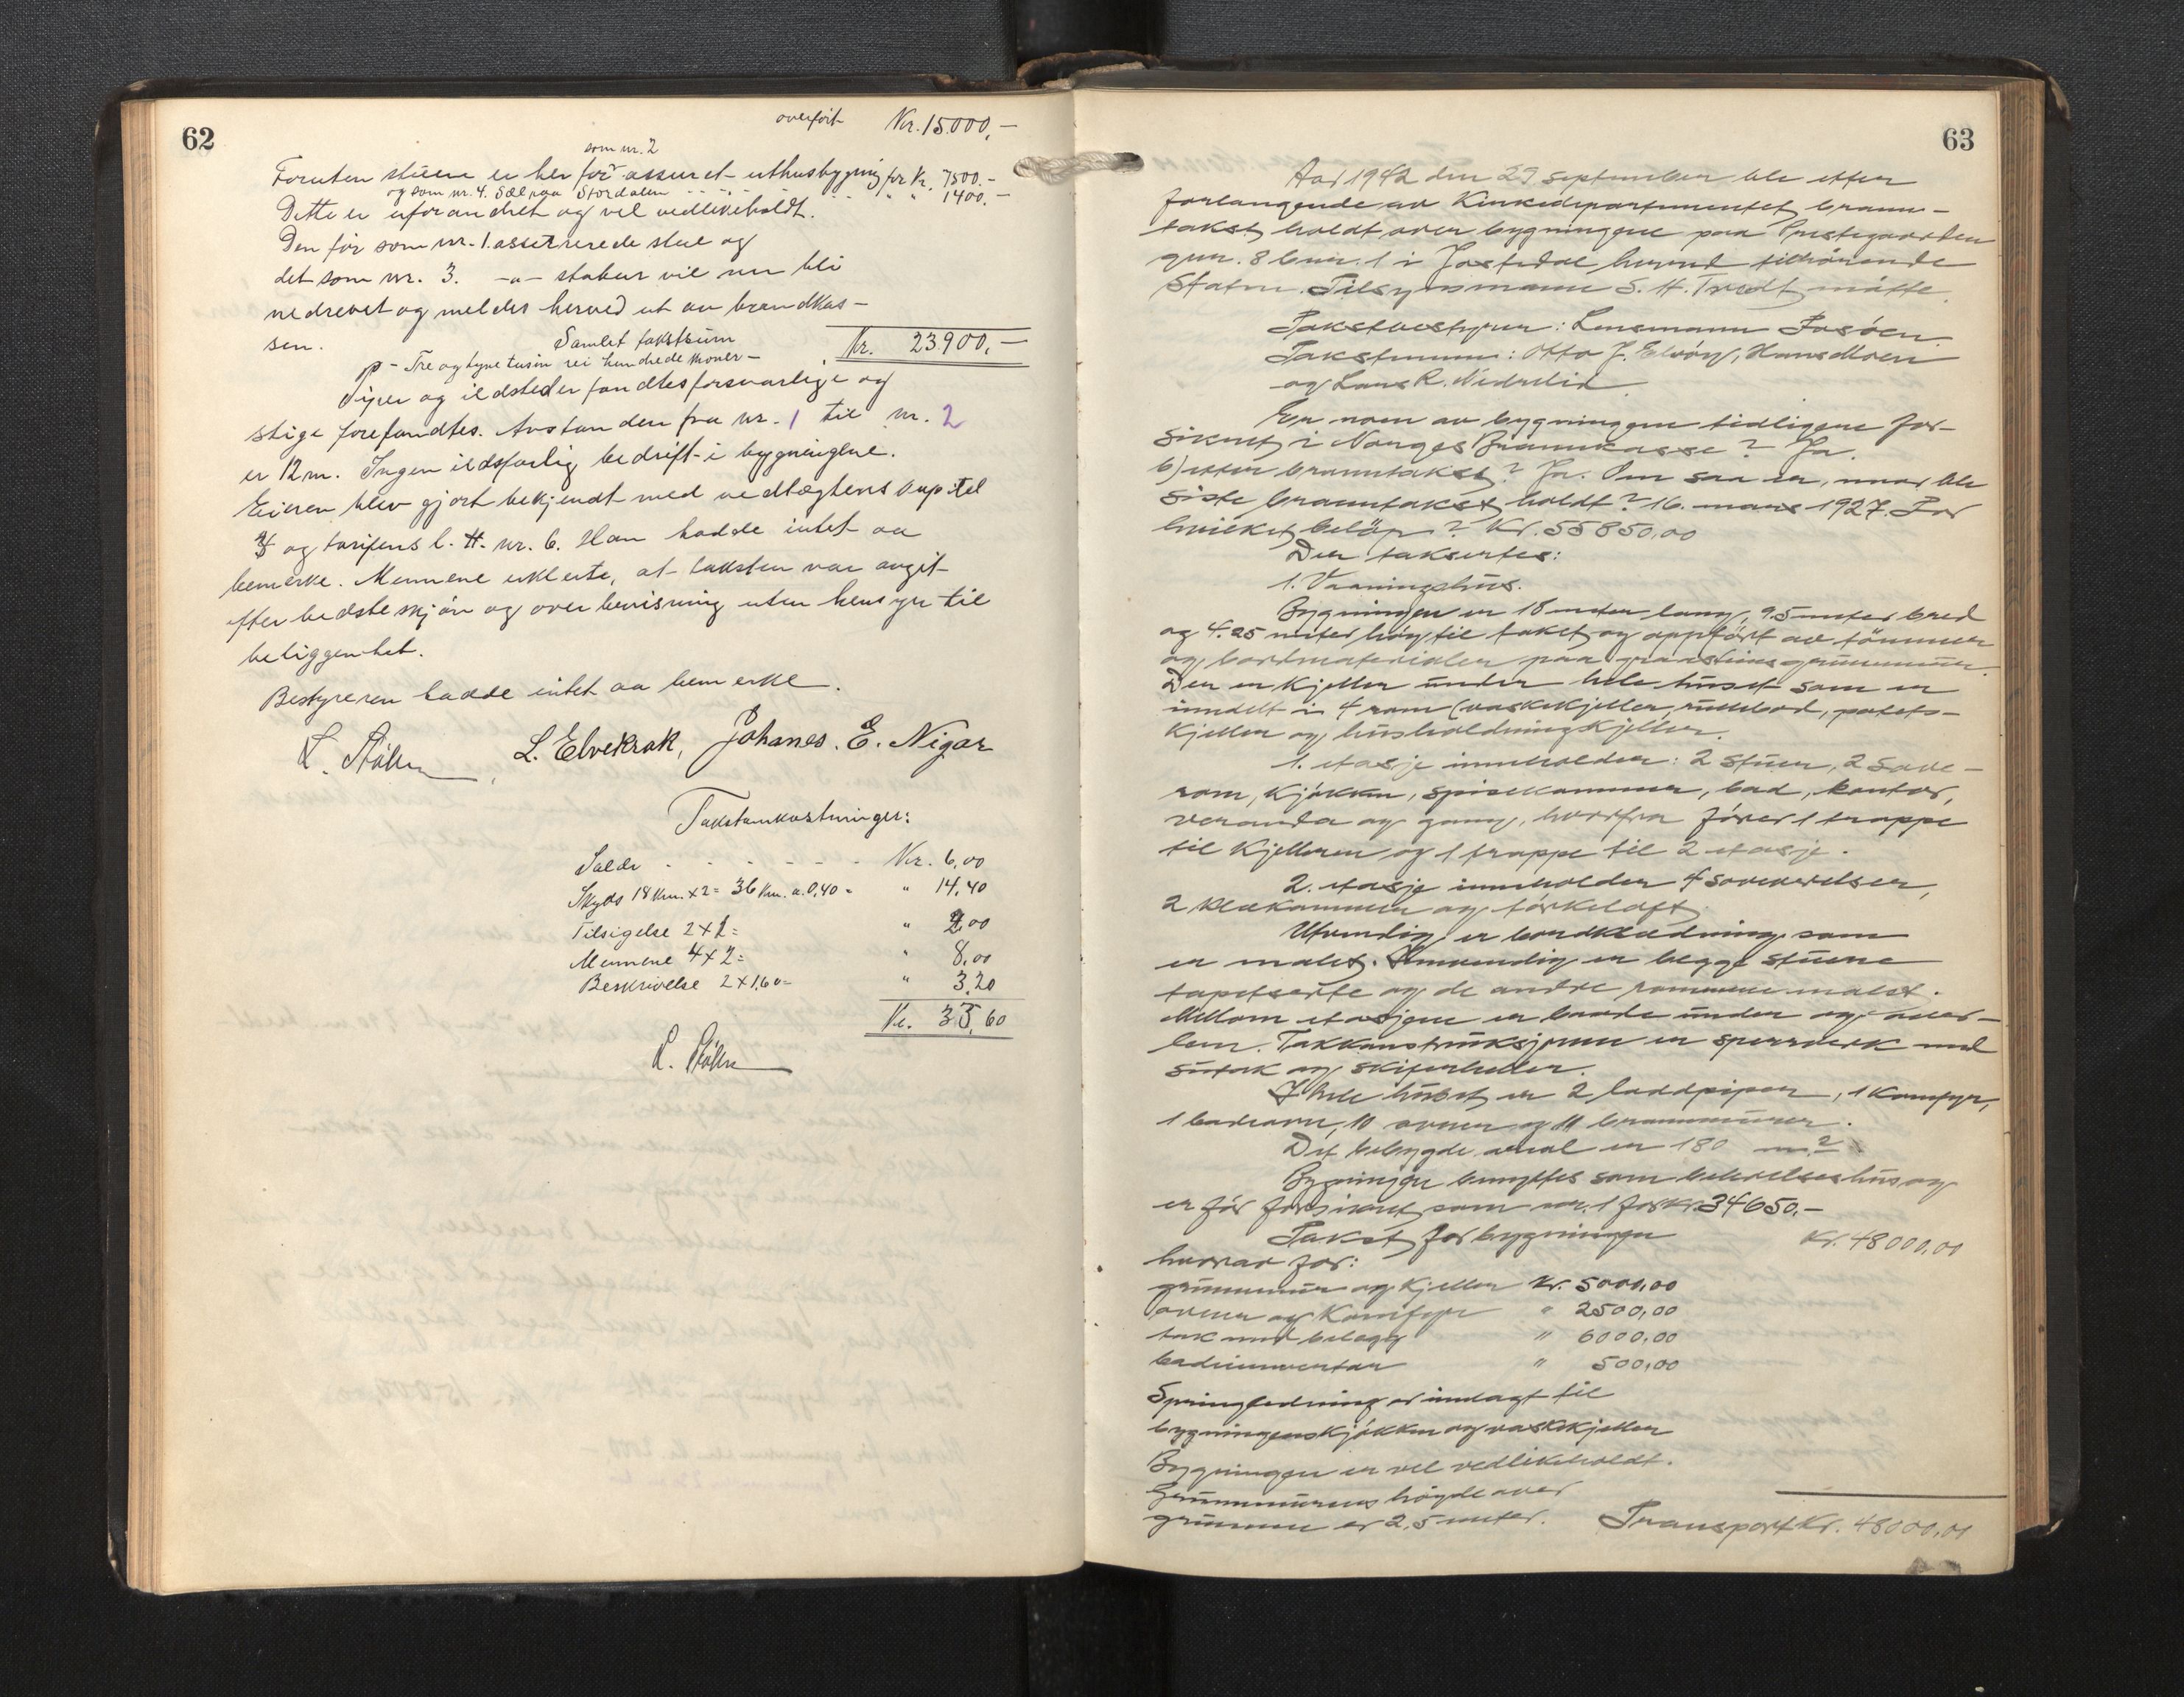 62
overført Kr. 15.000,-
som nr. 2
Foruten stuene er her før assurert uthusbygning for Kr. 7500.-
og som nr. 4. Sæl paa Stordalen - - - " " 1400.-
Dette er uforandret og vel vedlikeholdt.
Den før som nr. 1. assurerede stue og
det som nr. 3. -"- stabur vil nu bli
nedrevet og meldes herved ut av brandkas-
sen. Samlet takstsum Kr. 23900,-
- Tre og tyve tusin ni hundrede kroner -
Piper og ildsteder fandtes forsvarlige og
stige forefandtes. Avstanden fra nr. 1 til nr. 2
er 12 m. Ingen ildsfarlig bedrift i bygningene.
Eieren blev gjort bekjendt med vedtægtens kapitel
5 og tarifens l. H. nr. 6. Han hadde intet aa
bemerke. Mennene erklærte, at taksten var avgit
efter bedste skjøn og overbevisning uten hensyn til
beliggenhet.
Bestyreren hadde intet aa bemerke.
L. Elvekrok, Johanes. E. Nigar
Takstomkostninger:
Salær - - - - - - Kr. 6,00
Skyds 18 Km. x 2 = 36 Km. a. 0,40 = " 14,40
Tilsigelse 2 x 1 = " 2,00
Mennene 4 x 2 = " 8,00
Beskrivelse 2 x 1,60 = " 3,20
Kr. 33,60
63
Aar 1942 den 29 september ble etter
forlangende av Kirkedepartementet brann-
takst holdt over bygningene paa Prestegaarden
gnr. 8 bnr. 1 i Jostedal herred tilhørende
Staten. Tilsynsmann S. H. Tvedt møtte.
Takstbestyrer: Lensmann Fosøen.
Takstmenn: Otto J. Elvøy, Hans Moen
og Lars R. Nedrelid.
Er noen av bygningene tidligere for-
sikret i Norges Brannkasse? Ja.
b) etter branntakst? Ja. Om saa er, naar ble
siste branntakst holdt? 16. mars 1927. For
hvilket beløp? Kr. 55850,00
Der takseres:
1. Vaaningshus.
Bygningen er 18 meter lang, 9.5 meter bred
og 4.25 meter høg til taket og oppført av tømmer
og bordmaterialer paa graasteins grunnmur.
Der er kjeller under hele huset som er
inndelt i 4 rom (vaskekjeller, rullebod, potets-
kjeller og husholdningskjeller.
1. etasje inneholder: 2 stuer, 2 sove-
rom, kjøkken, spisekammer, bad, kontor,
veranda og gang, hvorfra fører 1 trappe
til kjelleren og 1 trappe til 2 etasje.
2. etasje inneholder 4 soveværelser,
2 klækammer og tørkeloft.
Utvendig er bordklædning som
er malet. Innvendig er begge stuene
tapetserte og de andre rommene malet.
Mellom etasjene er baade under og over-
lem. Takkonstruksjonen er sperrverk med
sutak og skiferheller.
I hele huset er 2 loddpiper, 1 komfyr,
1 badeovn, 10 ovner og 11 brannmurer.
Det bebygde areal er 180 m2
Bygningen benyttes som beboelseshus og
er før forsikret som nr. 1 for kr. 34650.-
Takst for bygningen Kr. 48000,00
hvorav for:
grunnmur og kjeller Kr. 5000,00
ovner og komfyr " 2500,00
tak med belegg " 6000,00
badeinventar " 500,00
Springledning er innlagt til
bygningens kjøkken og vaskekjeller
Bygningen er vel vedlikeholdt.
Grunnmurens høgde over
grunnen er 2,5 meter. Transport Kr. 48000,00